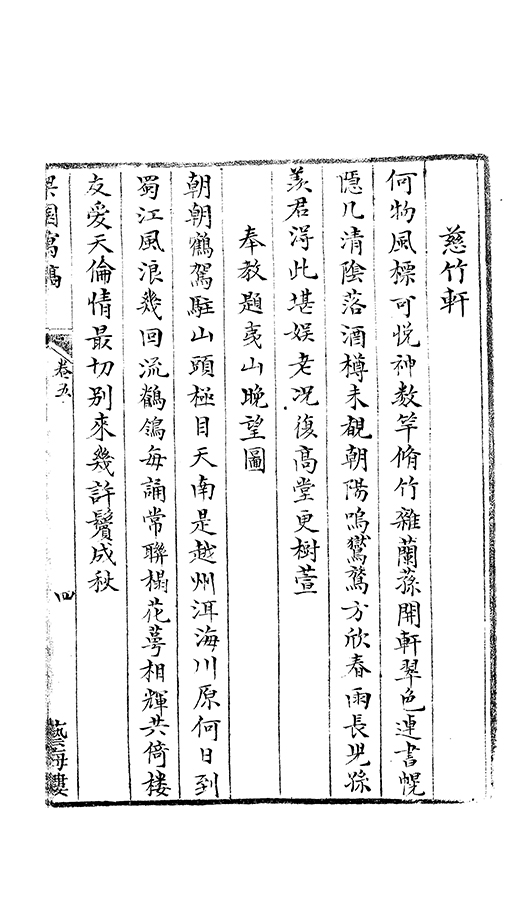 慈竹軒
何物風標可悅神數竿脩竹雜蘭蓀開軒翠色連書幌
隱几清陰落酒樽未覩朝陽鳴鸑鷟方欣春雨長兒孫
羨君淂此堪娱老况復髙堂更樹萱
奉教題夷山晚望圖
朝朝鶴駕駐山頭極目天南是越州洱海川原何日到
蜀江風浪幾回流鶺鴒每誦常聯榻花萼相輝共倚楼
友爱天倫情最切别來幾許鬢成秋
卷五
四